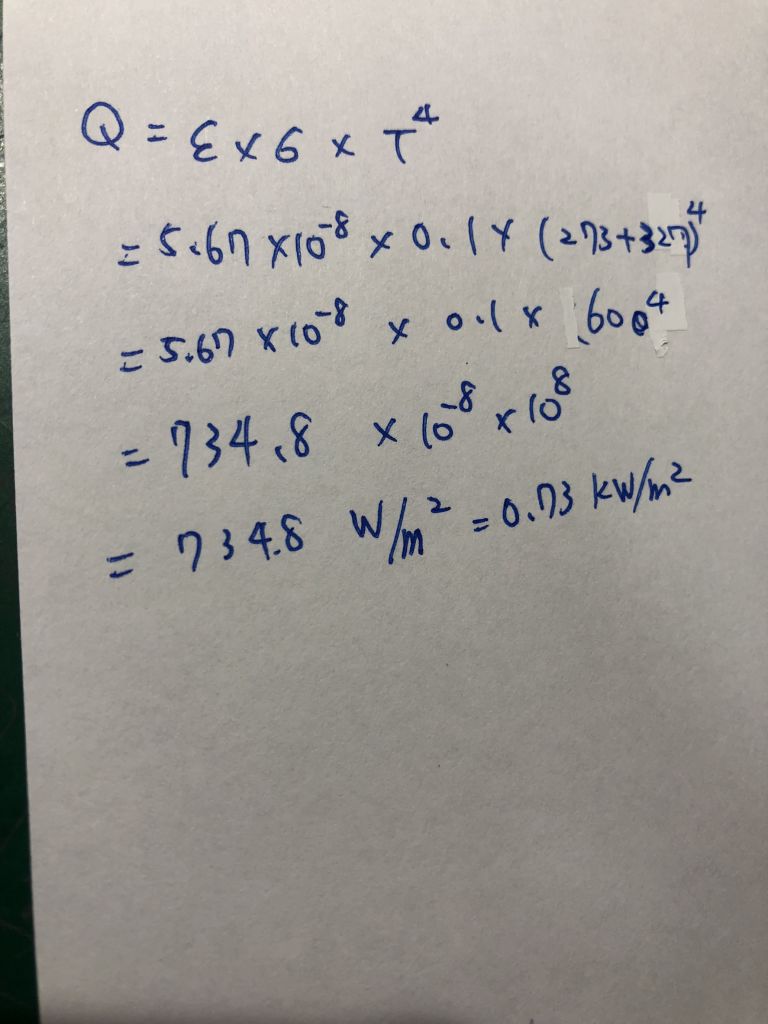 Q = ε × σ × T⁴
= 5.67 × 10⁻⁸ × 0.1 × (273+327)⁴
= 5.67 × 10⁻⁸ × 0.1 × 600⁴
= 734.8 × 10⁻⁸ × 10⁸
= 734.8 W/m² = 0.73 kW/m²